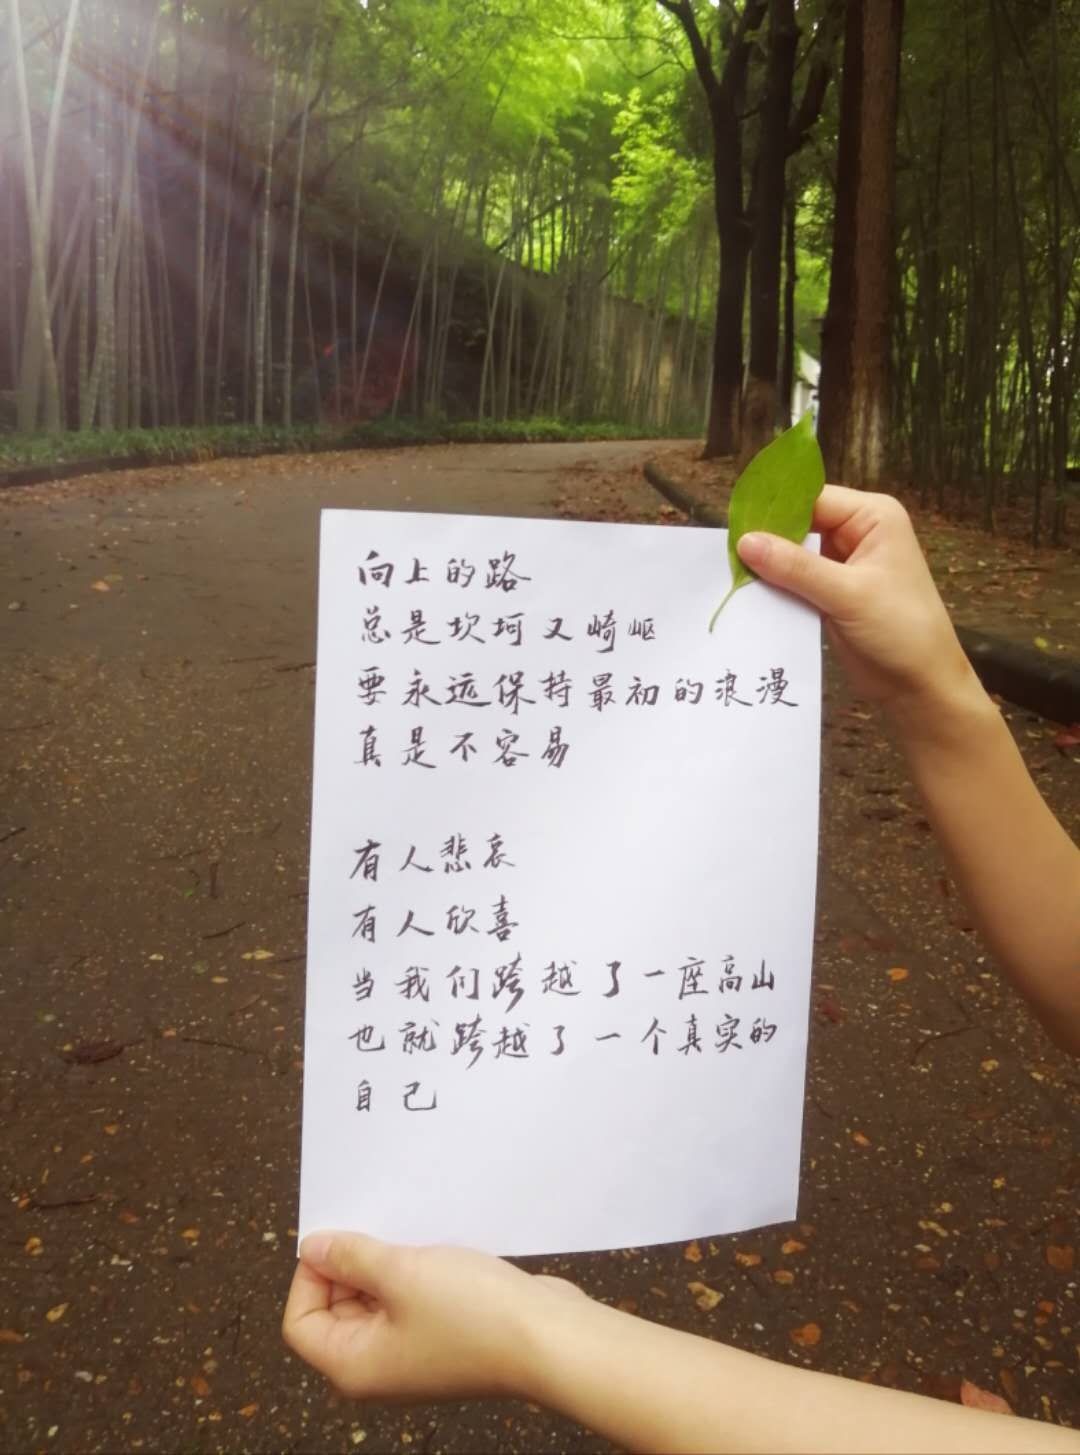 向上的路
总是坎坷又崎岖
要永远保持最初的浪漫
真是不容易
有人悲哀
有人欣喜
当我们跨越了一座高山
也就跨越了一个真实的
自己